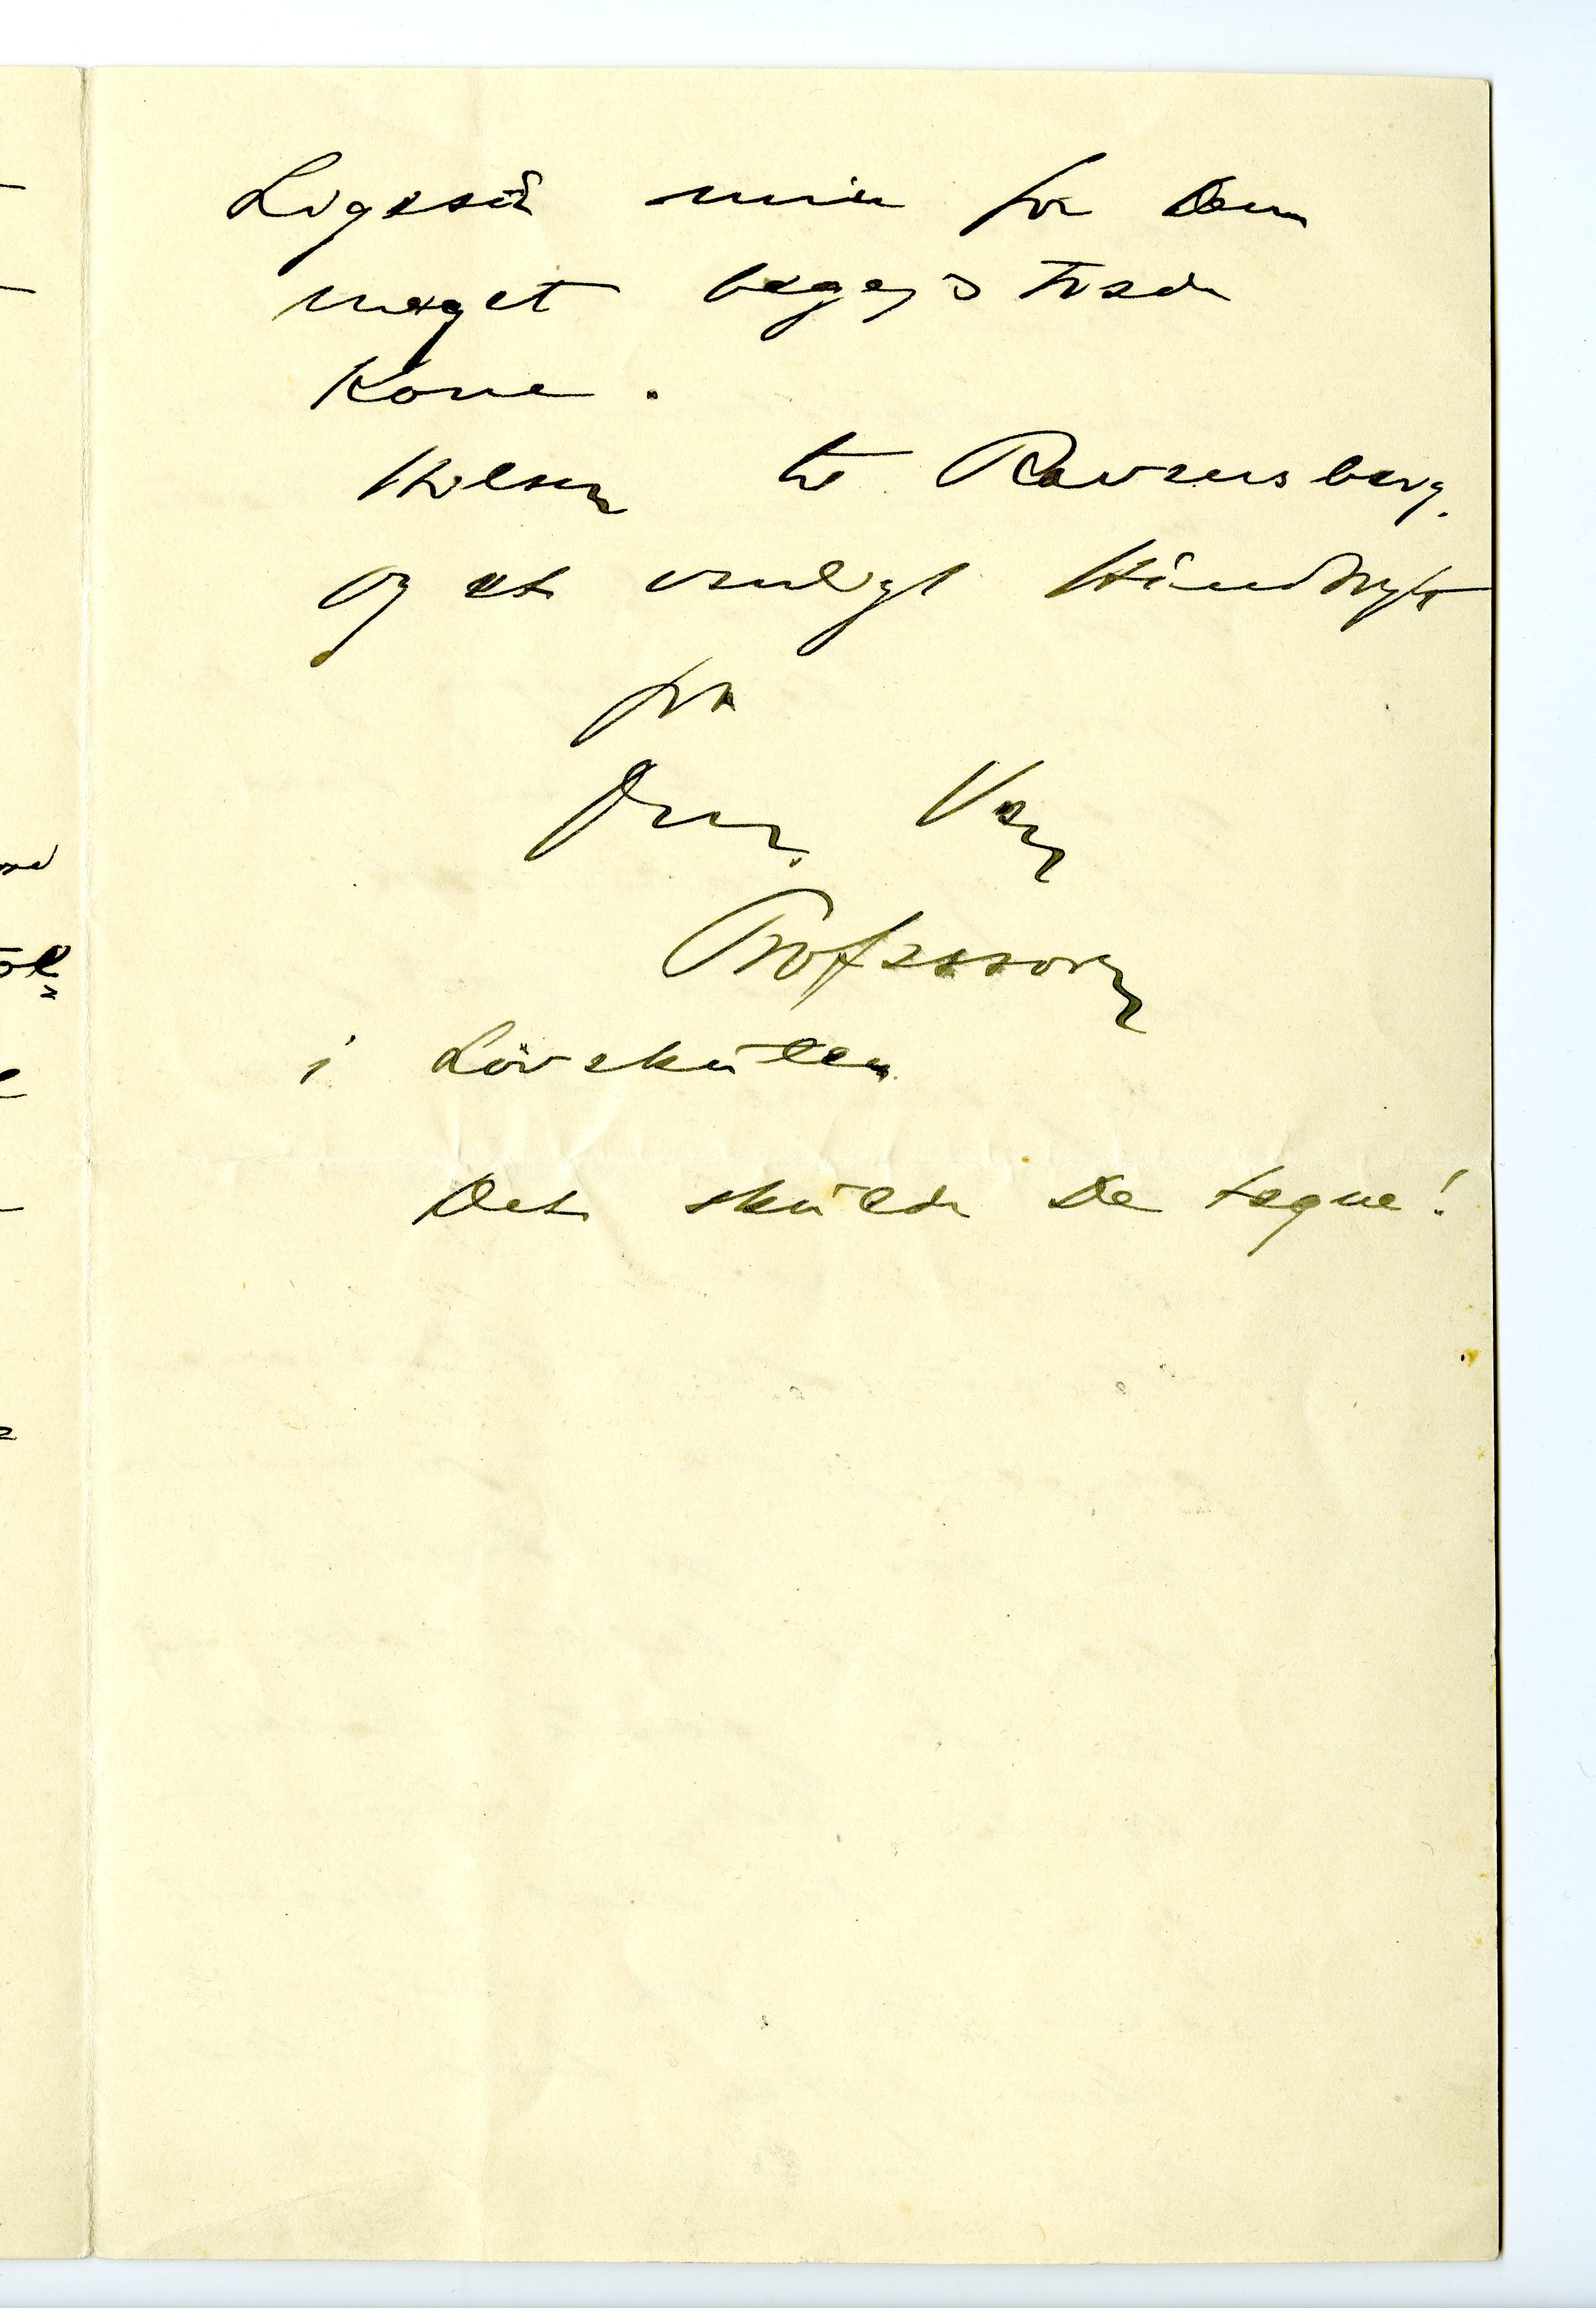 Ligesaa min for Dem
meget begejstrede
Kone.
Hilsen til Ravensberg.
Og et venligt Haandtryk
fra
Deres Ven
Professoren
i Løvehulen
Det skulde De tegne!